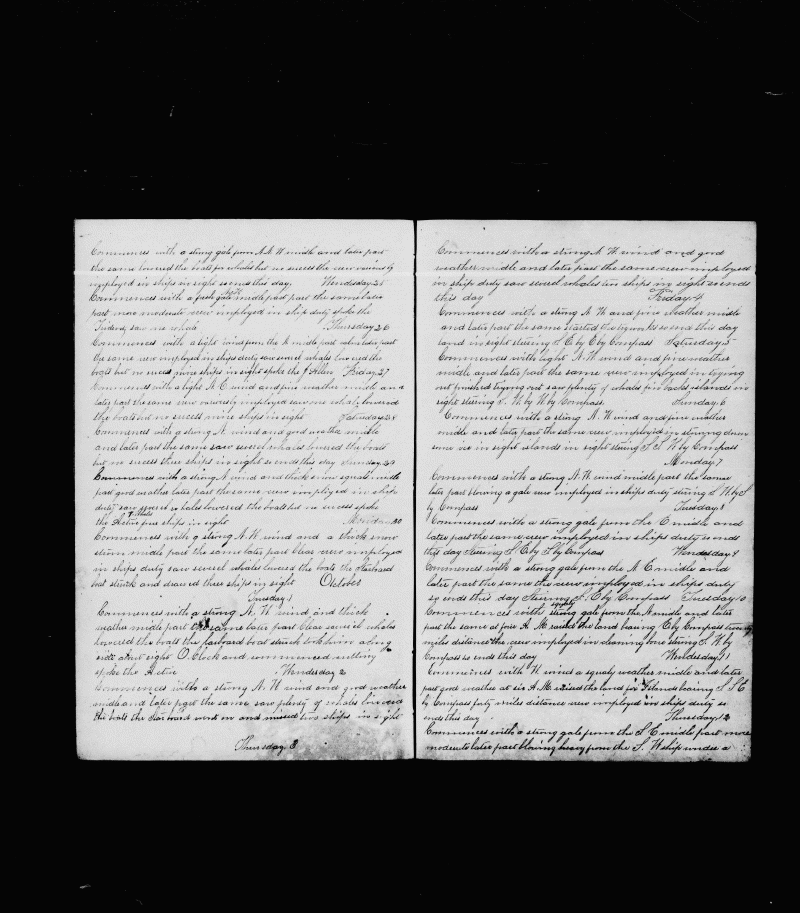 Commences with a strong gale from N.N.W. midle and later part
the same lowered the boats for whales but no sucess the crew variously
employed in ships in sight so ends this day. Wendsday 25
Commences with a fresh gale midle part the same later
part more moderate crew imployed in ship duty spoke the
Trident saw no whale Thursday 26
Commences with a light wind from the N midle part and later part
the same crew imployed in ships duty saw several whales lowered the
boats but no sucess more ships in sight spoke the J Allen Friday 27
Commences with a light N.E. wind and fine wather midle and
later part the same crew variously imployed saw one whale lowered
the boats but no sucess more ships in sight Saturday 28
Commences with a strong N wind and good weather midle
and later part the same saw several whales lowered the boats
but no sucess three ships in sight so ends this day Sunday 29
Commences with a strong N wind and thick snow squals midle
part good wather later part the same crew imployed in ship
duty saw several whales lowered the boats but no sucess spoke
the Active five ships in sight Monday 30
Commences with a strong N.W. wind and a thick snow
storm midle part the same later part clear crew imployed
in ships duty saw several whales lowered the boats the Starboard
boat struck and drawed three ships in sight October
Tuesday 1
Commences with a strong N. W wind and thick
weather midle part the same later part clear saw several whales
lowered the boats the larboard boat struck took him along
side about eight O Clock and commenced cutting
spoke the Active Wendesday 2
Commences with a strong N. W wind and good weather
midle and later part the same saw plenty of whales lowered
the boats the Starboard went on and missed two ships in sight
Thursday 3
Commences with a strong N. W. wind and good
weather midle and later part the same crew imployed
in ship duty saw several whales six ships in sight so ends
this day Friday 4
Commences with a strong N. W and fine weather midle
and later part the same started the tryworks so ends this day
land in sight stering S. E. by E by Compass Satturday 5
Commences with light N. W. wind and fine weather
midle and later part the same crew imployed in trying
out finished trying out saw plenty of whales fin backs islands in
sight stering S. W by W by Compass. Sunday. 6
Commences with a strong N. W and fine wather
midle and later part the same crew imployed in stowing down
some ice in sight islands in sight stering S. S. W by Compass
Monday 7
Commences with a strong N. W wind midle part the same
later part blowing a gale crew imployed in ships duty stering S. W by S
by Compass Tuesday 8
Commences with a strong gale from the N. E midle and
later part the same crew imployed in ships duty so ends
this day Stering S. E by S by Compass Wendesday 9
Commences with a strong gale from the N. E midle and
later part the same the crew imployed in ships duty
so ends this day Stering S. E by Compass Tuesday 10
Commences with strong squaly gale from the N midle and later
part the same at four A. M. raised the land bearing E by Compass twenty
miles distance the crew imployed in cleaning bone stering S. W. by
Compass so ends this day Wendesday 11
Commences with W. wind a squaly weather midle and later
part good weather at six A. M. raised the land fox Islands bearing S. S. E
by Compass forty miles distance crew imployed in ships duty so
ends this day Thursday 12
Commences with a strong gale from the S. E midle part more
moderate later part blowing heavy from the S. W ship under a